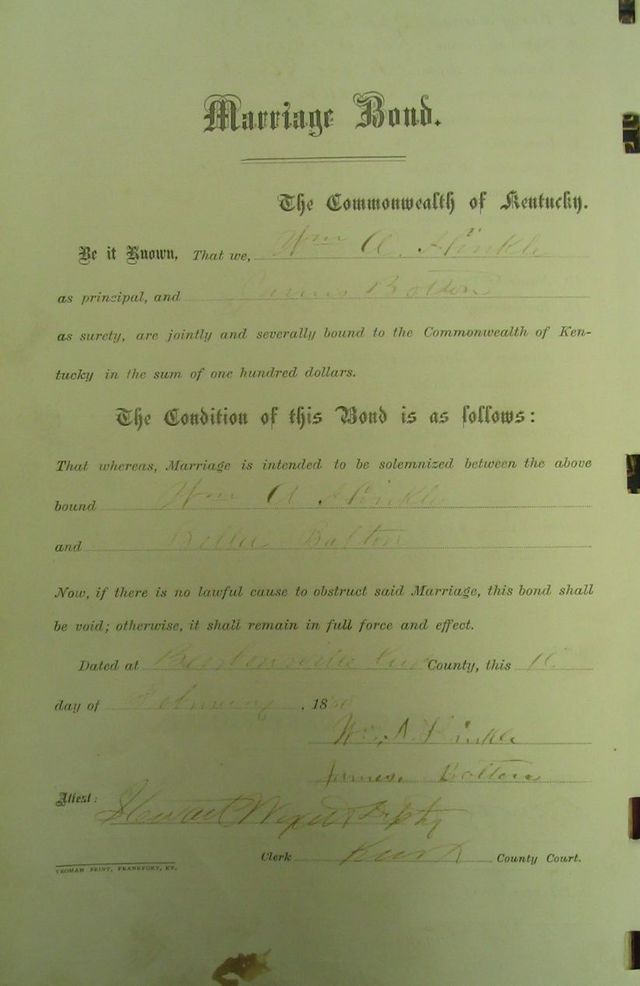 Marriage Bond.
The Commonwealth of Kentucky.
Be it Known, That we, Wm A. Hinkle
as principal, and James Bolton
as surety, are jointly and severally bound to the Commonwealth of Ken-
tucky in the sum of one hundred dollars.
The Condition of this Bond is as follows:
That whereas, Marriage is intended to be solemnized between the above
bound Wm A Hinkle
and Bolton
Now, if there is no lawful cause to obstruct said Marriage, this bond shall
be void; otherwise, it shall remain in full force and effect.
Dated at County, this
day of February, 18
Wm A Hinkle
James. Bolton
Attest:
Clerk County Court.
YEOMAN PRINT, FRANKFORT, KY.